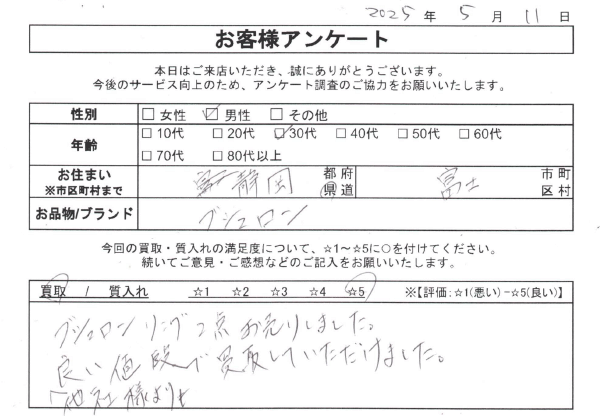 2025 年 5 月 11 日
お客様アンケート
本日はご来店いただき、誠にありがとうございます。
今後のサービス向上のため、アンケート調査のご協力をお願いいたします。
性別 □ 女性 ☑ 男性 □ その他
年齢 □ 10代 □ 20代 ☑ 30代 □ 40代 □ 50代 □ 60代
□ 70代 □ 80代以上
お住まい ※市区町村まで 静岡 都 府 県 道 富士 市 町 区 村
お品物/ブランド ブシュロン
今回の買取・質入れの満足度について、☆1～☆5に○を付けてください。
続いてご意見・ご感想などのご記入をお願いいたします。
買取 / 質入れ ☆1 ☆2 ☆3 ☆4 ☆5 ※【評価:☆1(悪い)－☆5(良い)】
ブシュロン リング 2点 お売りしました。
良い値段で買取していただけました。
他社様より